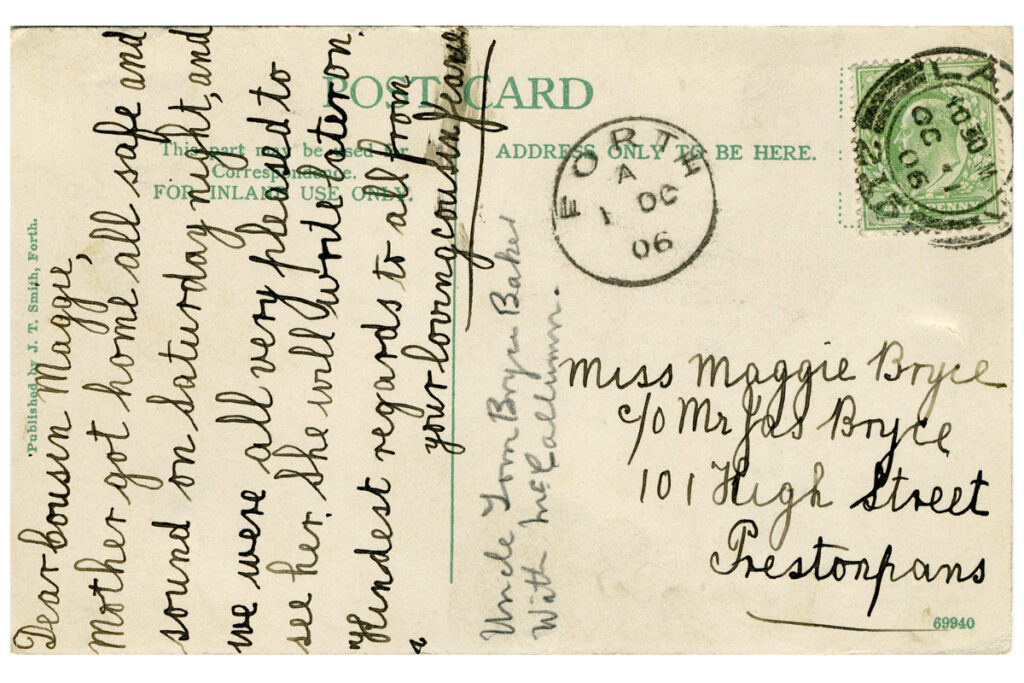 POST CARD
This part may be used for
Correspondence.
FOR INLAND USE ONLY.
ADDRESS ONLY TO BE HERE.
Published by J. T. Smith, Forth.
Dear Cousin Maggie,
Mother got home all safe and
sound on Saturday night, and
we were all very pleased to
see her. She will write later on.
Kindest regards to all from
your loving cousin Jeanie
Uncle Tom Bryce Baker
With McCallumn.
FORTH
A
1 OC
06
LA
10 30 M
OC 1
06
Miss Maggie Bryce
c/o Mr Jas Bryce
101 High Street
Prestonpans
69940